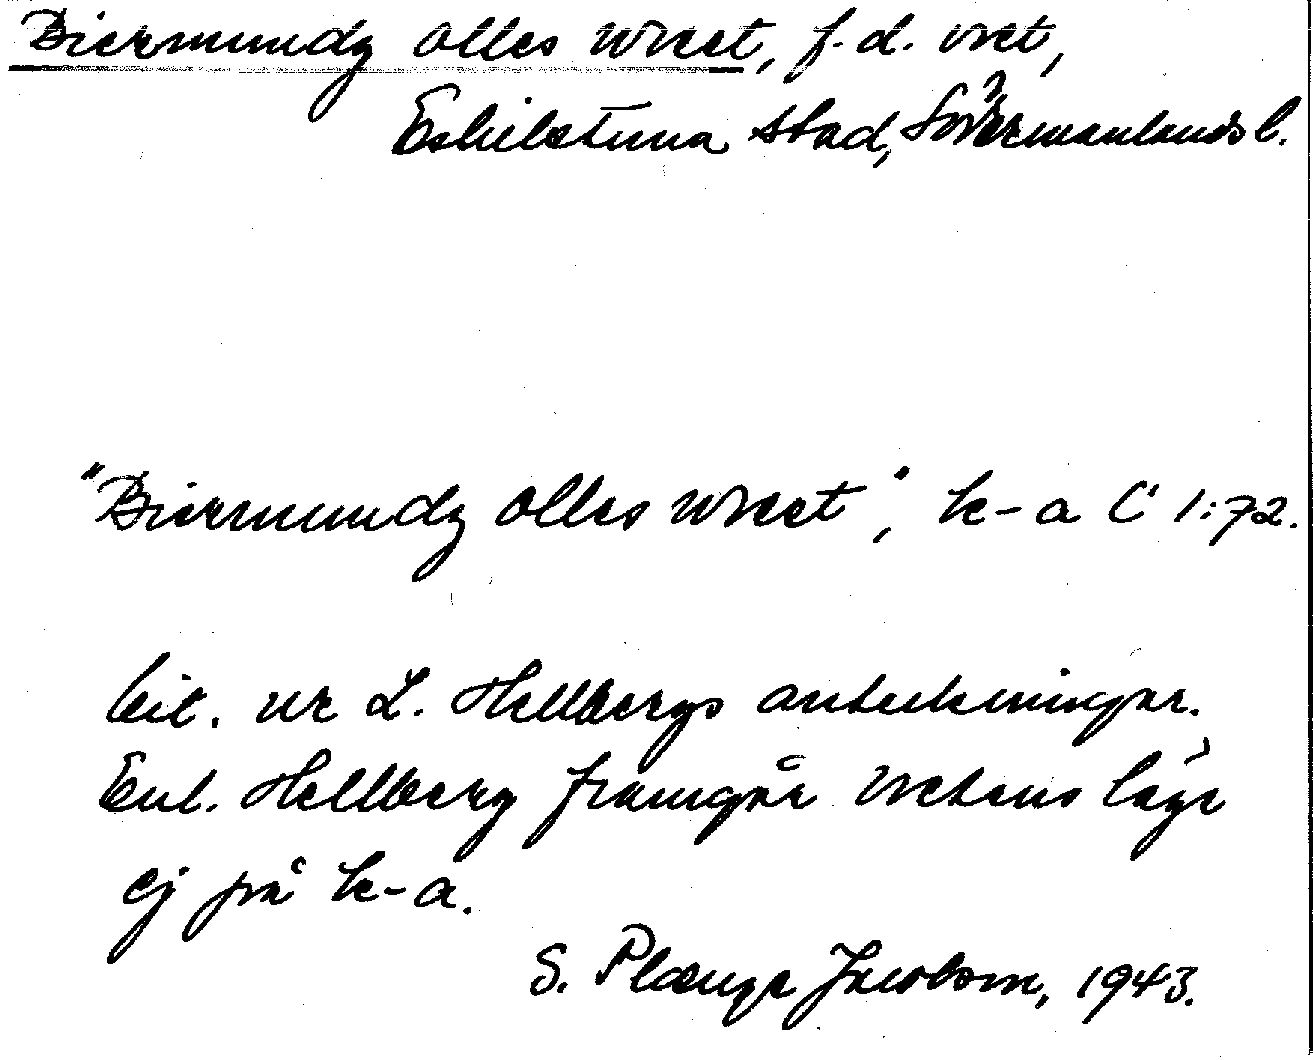 Biermundz olles wreet, f.d. vret,
Eskilstuna stad, Södermanlands l.
"Biermundz olles wreet", k-a C 1:72.
cit. ur L. Hellbergs anteckningar.
Enl. Hellberg framgår vretens läge
ej på k-a.
S. Plænge Jacobson, 1943.